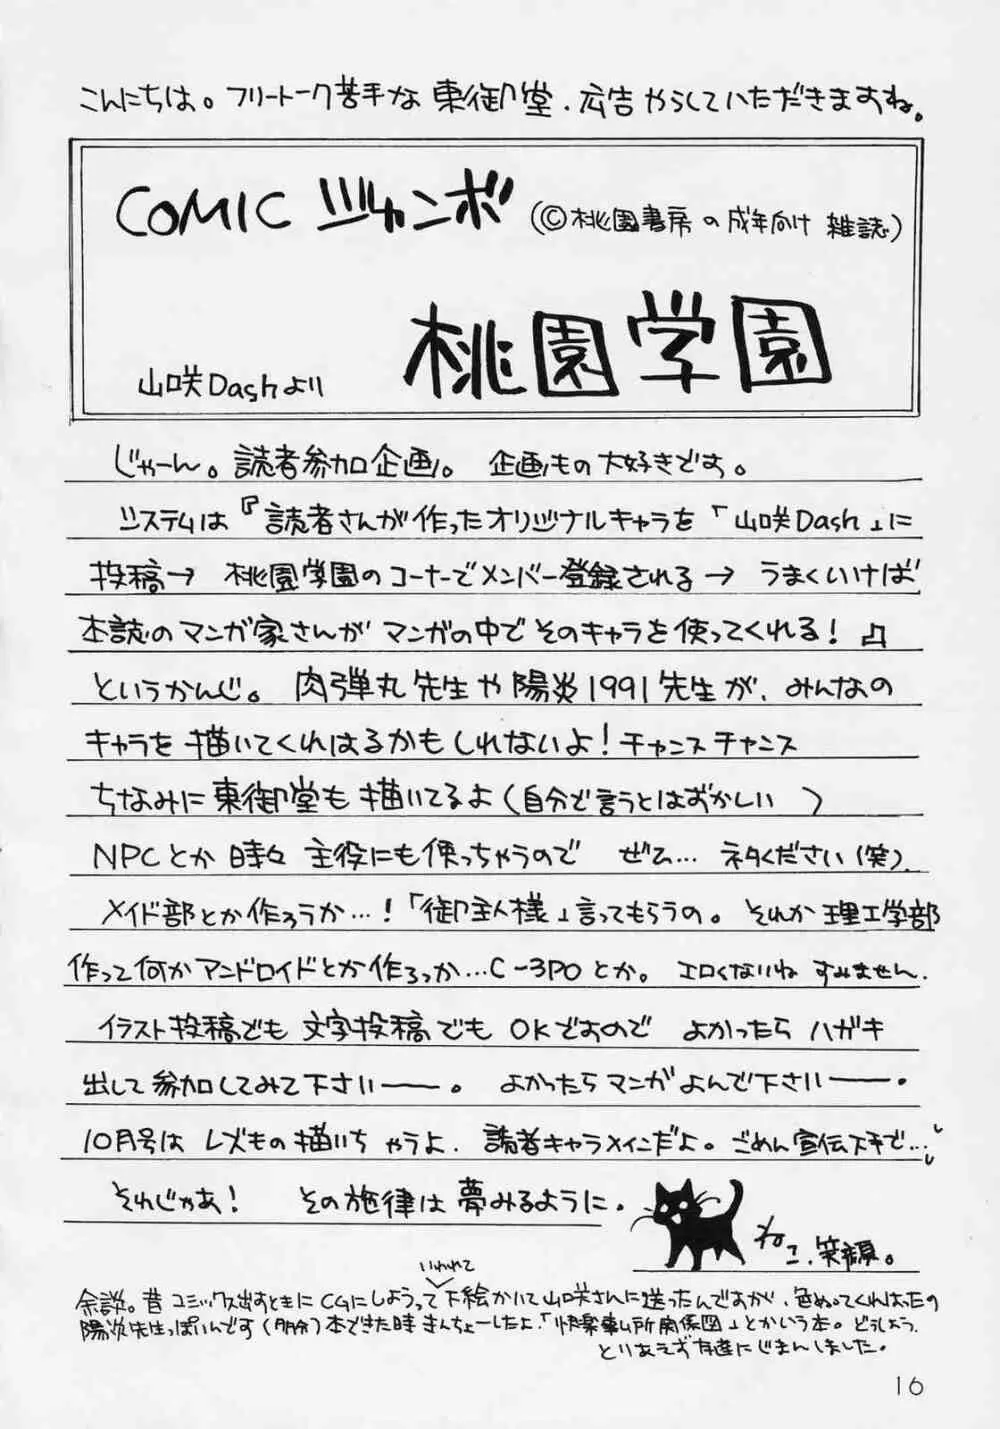 こんにちは。フリートーク苦手な東御堂、広告やらしていただきますね。
COMIC ジャンボ (©桃園書房の成年向け雑誌)
桃園学園
山咲Dashより
じゃーん。読者参加企画。企画もの大好きです。
システムは『読者さんが作ったオリジナルキャラを「山咲Dash」に
投稿→桃園学園のコーナーでメンバー登録される→うまくいけば
本誌のマンガ家さんがマンガの中でそのキャラを使ってくれる!』
というかんじ。肉弾丸先生や陽炎1991先生が、みんなの
キャラを描いてくれはるかもしれないよ!チャンスチャンス
ちなみに東御堂も描いてるよ(自分で言うとはずかしい )
NPCとか時々主役にも使っちゃうのでぜひ…ネタください(笑).
メイド部とか作ろうか…!「御主人様」言ってもらうの。それか理工学部
作って何かアンドロイドとか作ろっか…C-3POとか。エロくないね すみません.
イラスト投稿でも文字投稿でもOKですのでよかったらハガキ
出して参加してみて下さいー。よかったらマンガよんで下さいー.
10月号はレズもの描いちゃうよ.読者キャラメインだよ。ごめん宣伝下手で…
それじゃあ!その旋律は夢みるように.
ねこ、笑顔。
余談。昔コミックス出すときにCGにしようっていわれて下絵かいて山咲さんに送ったんですが、色ぬってくれはったの
陽炎先生っぽいんです(多分)本できた時きんちょーしたよ.「快楽事ム所関係図」とかいう本。どうしよう.
とりあえず友達にじまんしました.
16